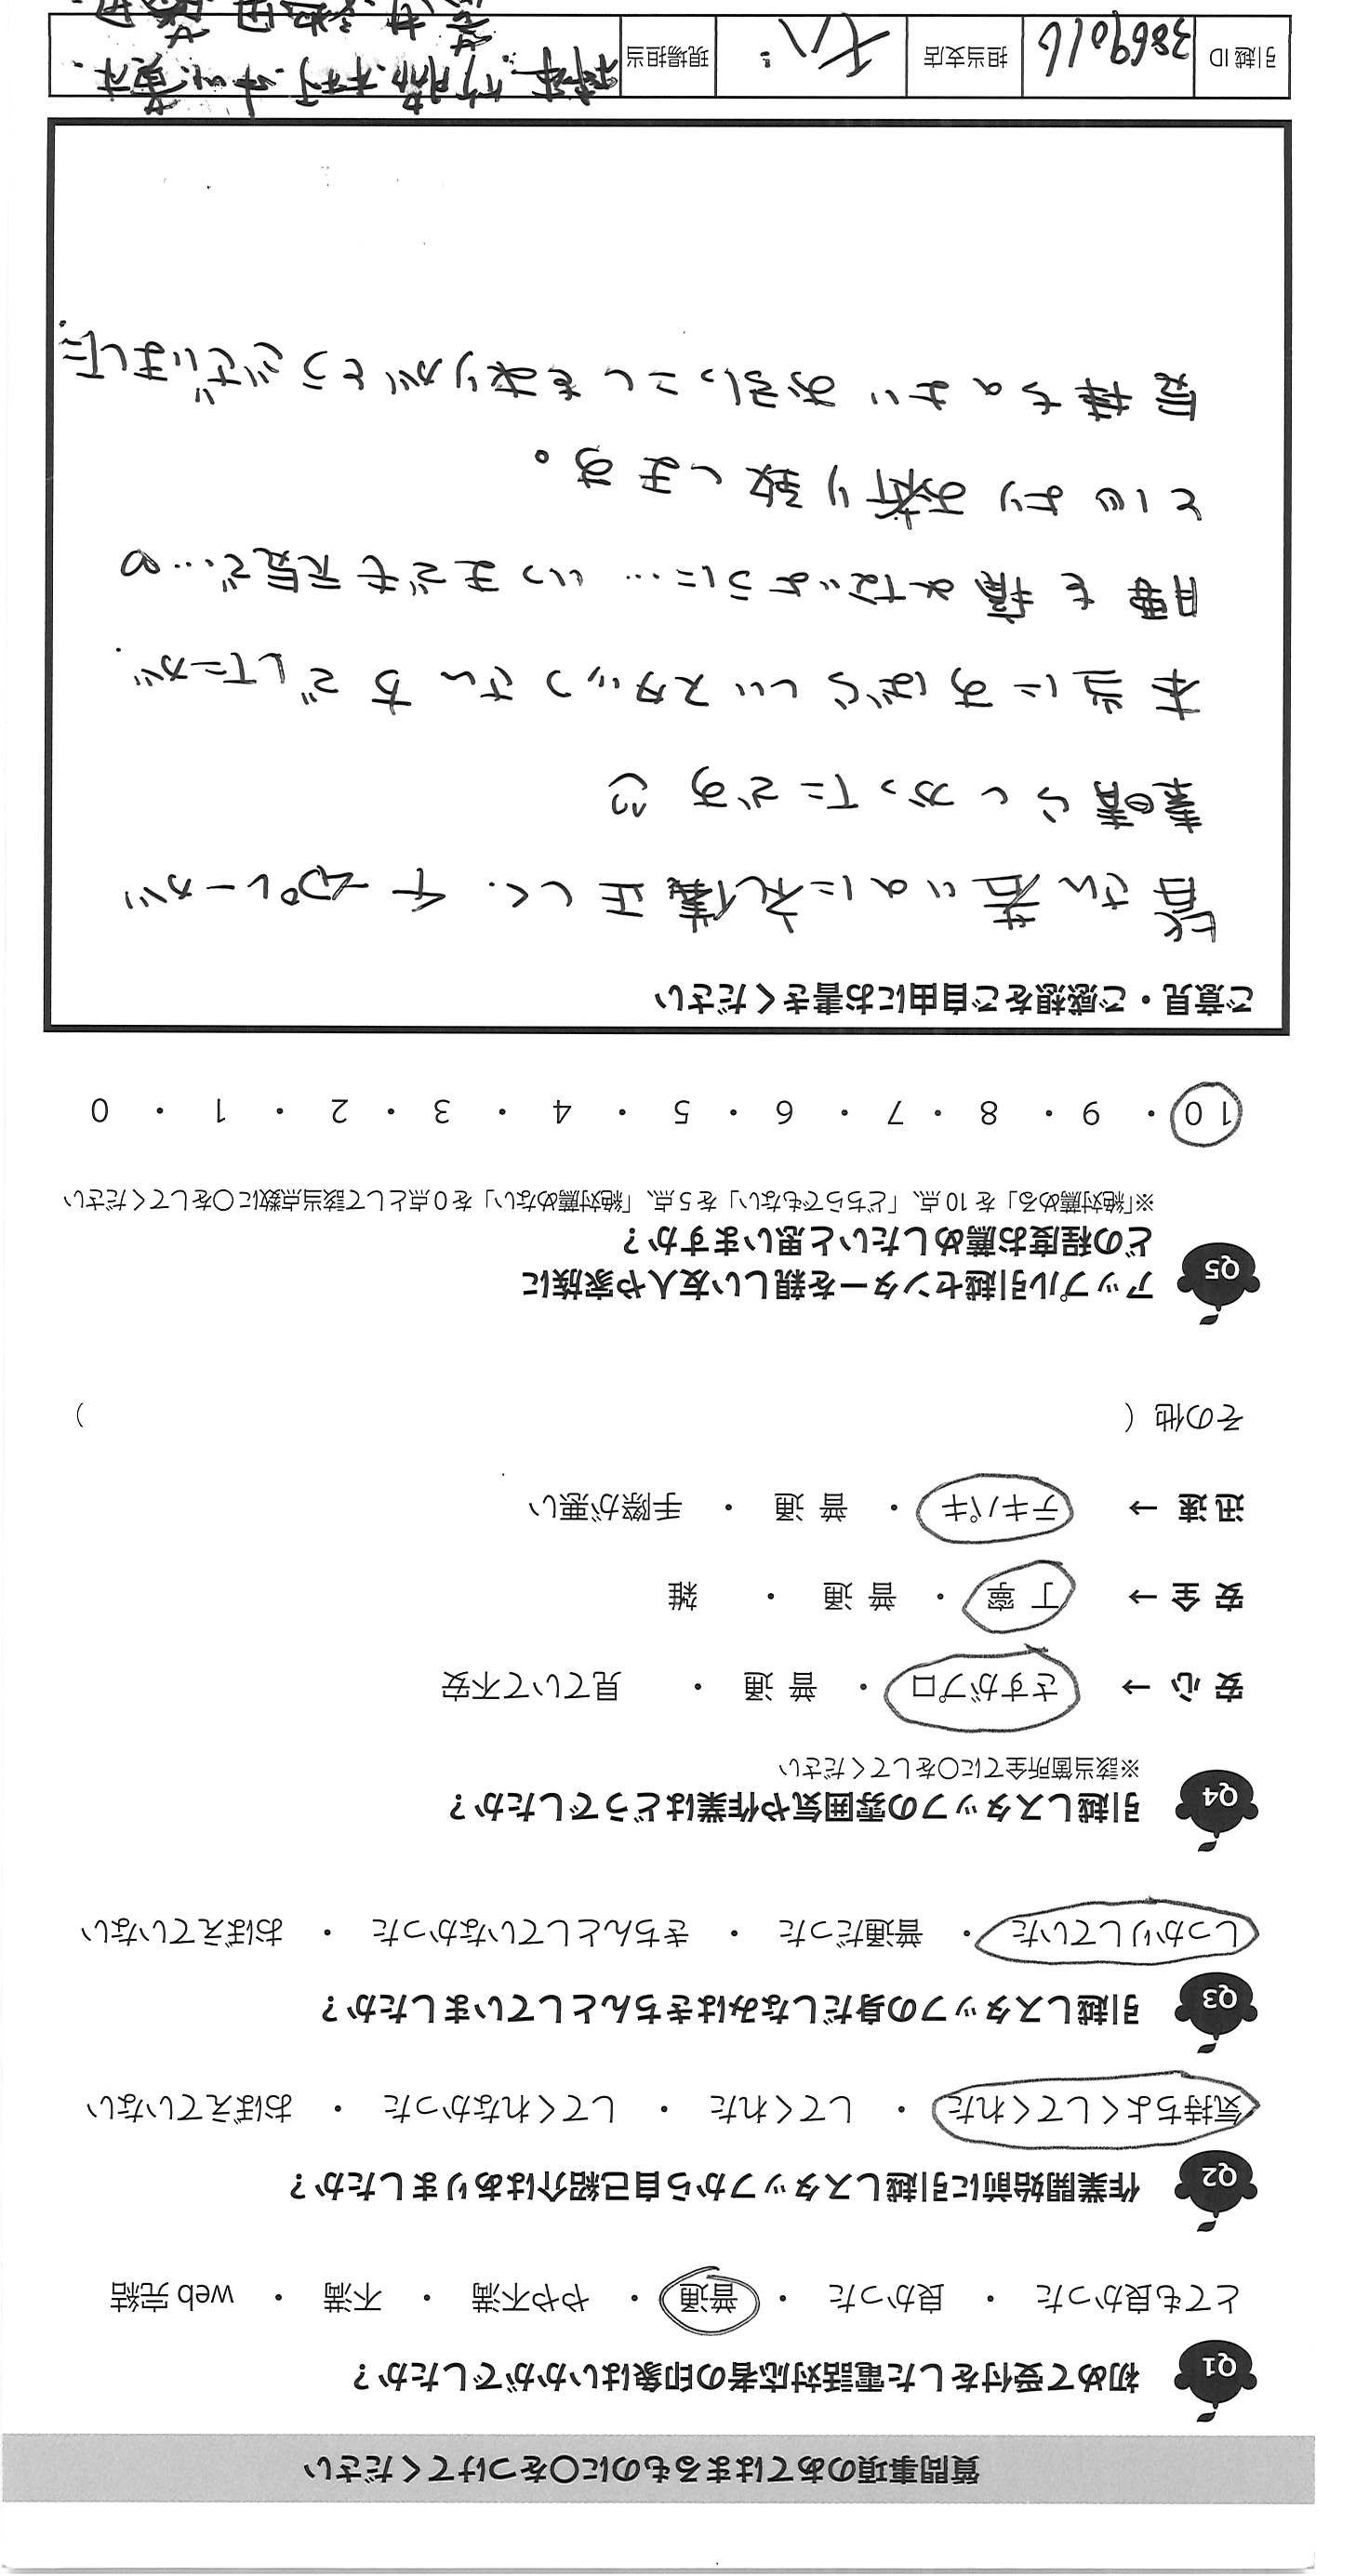 質問事項のあてはまるものに〇をつけてください
Q1 初めて受付をした電話対応者の印象はいかがでしたか？
とても良かった ・ 良かった ・ 普通 ・ やや不満 ・ 不満 ・ web 完結
Q2 作業開始前に引越しスタッフから自己紹介はありましたか？
気持ちよくしてくれた ・ してくれた ・ してくれなかった ・ おぼえていない
Q3 引越しスタッフの身だしなみはきちんとしていましたか？
しっかりしていた ・ 普通だった ・ きちんとしていなかった ・ おぼえていない
Q4 引越しスタッフの雰囲気や作業はどうでしたか？
※該当箇所全てに〇をしてください
安 心 → さすがプロ ・ 普 通 ・ 見ていて不安
安 全 → 丁 寧 ・ 普 通 ・ 雑
迅 速 → テキパキ ・ 普 通 ・ 手際が悪い
その他（ ）
Q5 アップル引越センターを親しい友人や家族に
どの程度お薦めしたいと思いますか？
※「絶対薦める」を 10 点、「どちらでもない」を 5 点、「絶対薦めない」を 0 点として該当点数に〇をしてください
10 ・ 9 ・ 8 ・ 7 ・ 6 ・ 5 ・ 4 ・ 3 ・ 2 ・ 1 ・ 0
ご意見・ご感想をご自由にお書きください
皆さん若いのに礼儀正しく、チームプレーが
素晴らしかったです
本当にすばらしいスタッフさん方でしたが、
腰を痛めないように… いつまでも元気で…の
と心よりお祈り致します。
気持ちのよいお引っこしをありがとうございました.
引越 ID 3869016 担当支店 現場担当